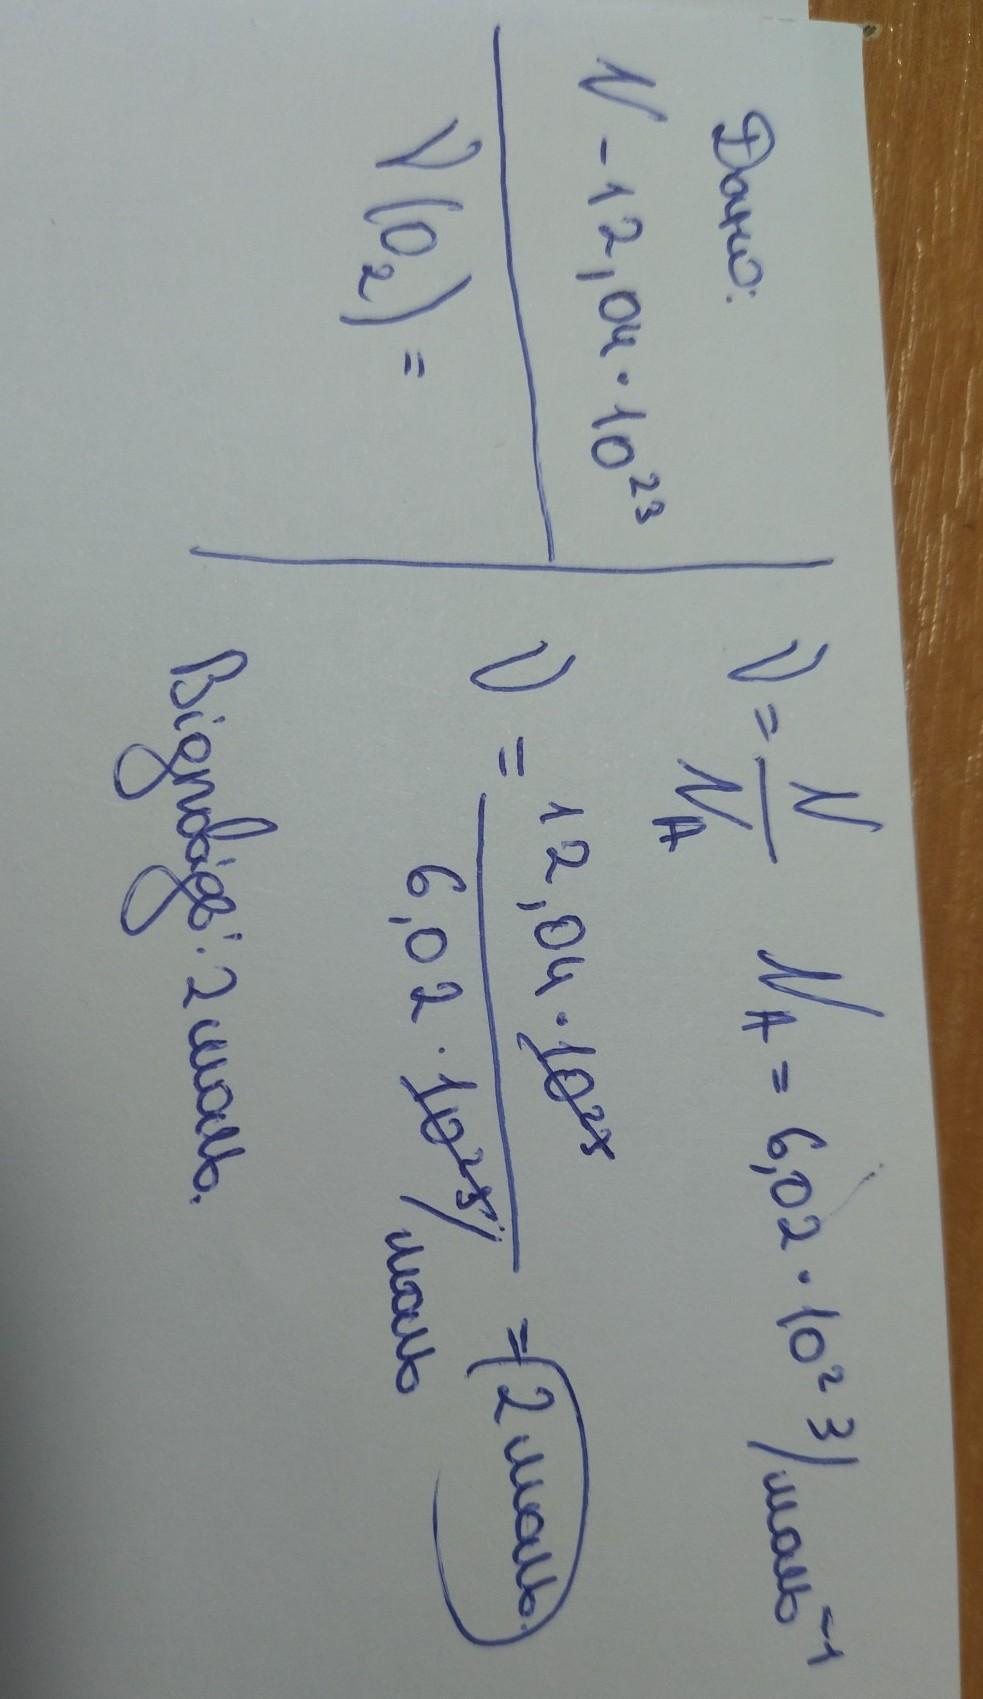 Дано:
N - 12,04 · 10²³
ν(O₂) =
ν = N / N_A    N_A = 6,02 · 10²³/моль⁻¹
ν = 12,04 · 10²³ / 6,02 · 10²³/моль = 2 моль.
Відповідь: 2 моль.